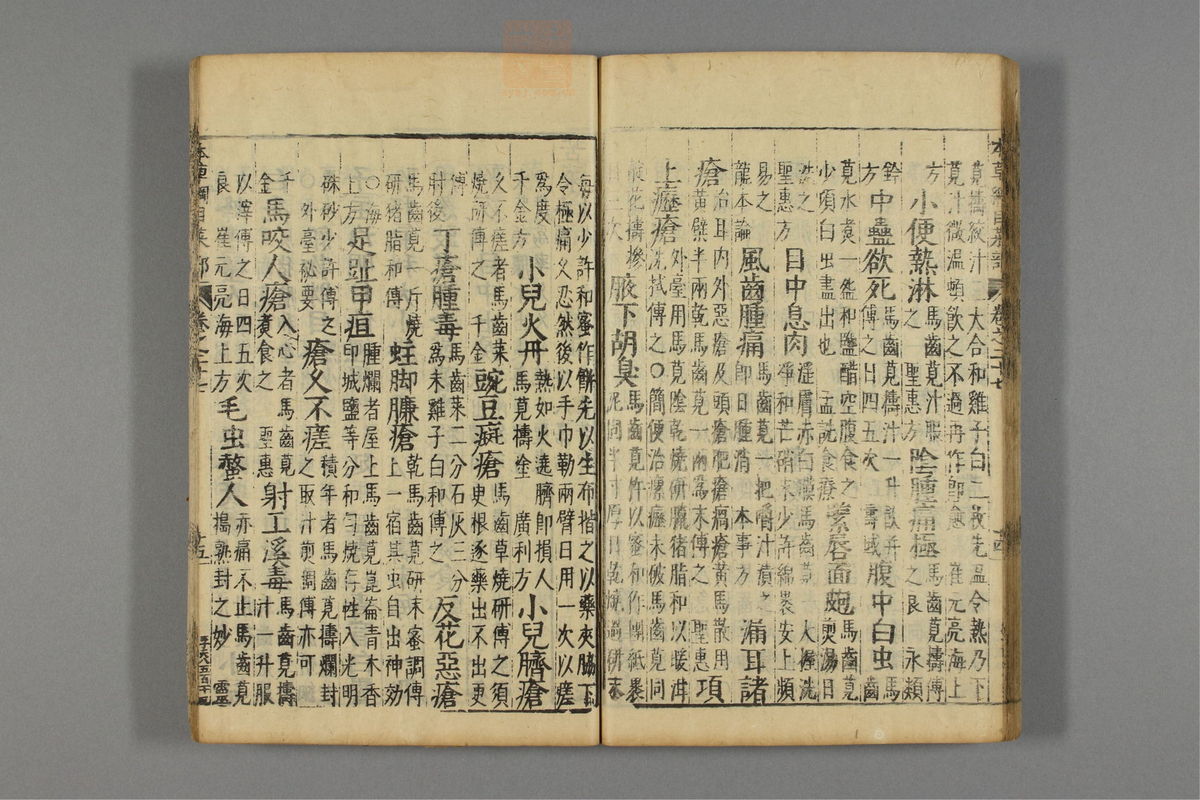 莧搗絞汁三大合和雞子白二枚先溫令熱乃下
莧汁微溫頓飲之不過再作即愈 崔元亮海上
方 小便熱淋 馬齒莧汁服之 聖惠方 陰腫痛極 馬齒莧搗傅之良 永類
鈐方 中蠱欲死 馬齒莧搗汁一升飲并傅之日四五次 壽域 腹中白虫 馬齒
莧水煮一盌和鹽醋空腹食之少頃白出盡出也 孟詵食療 緊唇面皰 馬齒莧煎湯日
洗之 聖惠方 目中息肉 淫膚赤白膜馬齒莧一大握洗淨和芒硝末少許綿裹安上頻
易之 龍木論 風齒腫痛 馬齒莧一把嚼汁漬之即日腫消 本事方 漏耳諸
瘡 治耳內外惡瘡及頭瘡肥瘡瘑瘡黃馬散用黃蘗半兩馬齒莧一兩為末傅之 聖惠 項
上瘰瘡 外臺用馬齒莧陰乾燒研臘猪脂和以暖泔洗拭傅之○簡便治瘰癧未破馬齒莧同
靛花搗摻日三次 腋下胡臭 馬齒莧杵以蜜和作團紙裹泥固半寸厚日乾燒過研末
每以少許和蜜作餅先以生布揩之以藥夾脇下
令極痛久忍然後以手巾勒兩臂日用一次以瘥
為度 千金方 小兒火丹 熱如火遶臍即損人馬莧搗塗 廣利方 小兒臍瘡
久不瘥者馬齒菜燒研傅之 千金 豌豆癍瘡 馬齒莧燒研傅之須臾根逐藥出不出更
傅 肘後 丁瘡腫毒 馬齒菜二分石灰三分為末雞子白和傅之 反花惡瘡
馬齒莧一斤燒研猪脂和傅 蛀脚臁瘡 乾馬齒莧研末蜜調傅上一宿其虫自出神効
○海上方 足趾甲疽 腫爛者屋上馬齒莧崑崙青木香印城鹽等分和勻燒存性入光明
硃砂少許傅之 外臺秘要 瘡久不瘥 積年者馬齒莧搗爛封之取汁煎稠傅亦可
千金 馬咬人瘡 入心者馬齒莧煮食之 聖惠 射工溪毒 馬齒莧搗汁一升服
以滓傅之日四五次良 崔元亮海上方 毛虫螫人 赤痛不止馬齒莧搗熟封之妙 靈
本草綱目菜部 卷之二十七 十四
本草綱目菜部 卷之二十七 十五